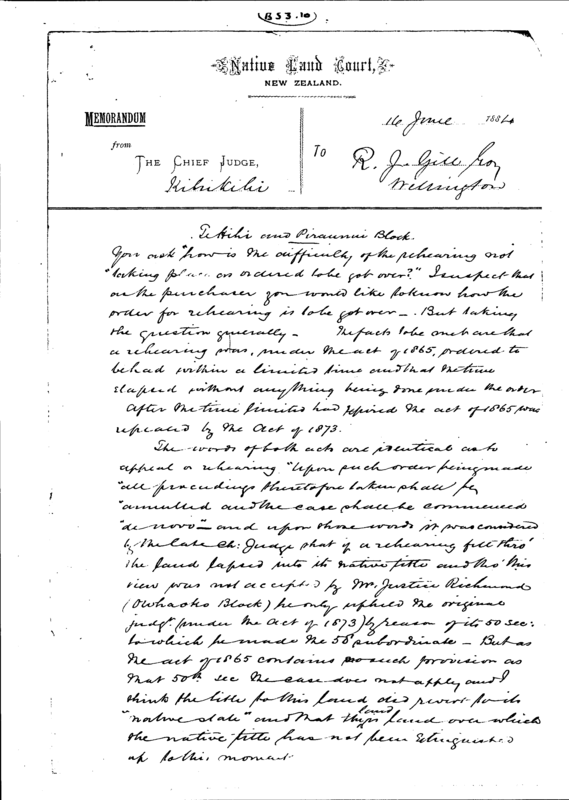 B53.10
Native Land Court,
NEW ZEALAND.
MEMORANDUM
from
THE CHIEF JUDGE,
Kihikihi
16 June 1884
To R. J. Gill Esq
Wellington
Te Hihi and Piraunui Block.
You ask "how is the difficulty of the rehearing not
"taking place as ordered to be got over?" I suspect that
as the purchaser you would like to know how the
order for rehearing is to be got over — But taking
the question generally — The facts to be met are that
a rehearing was, under the act of 1865, ordered to
be had within a limited time and that the time
elapsed without anything being done under the order
After the time limited had expired the act of 1865 was
repealed by the Act of 1873.
The words of both acts are identical as to
appeal or rehearing "Upon such order being made
"all proceedings theretofore taken shall be
"annulled and the case shall be commenced
"de novo" — and upon those words it was considered
by the late Ch: Judge that if a rehearing fell thro'
the land lapsed into its native title and tho' this
view was not accepted by Mr. Justice Richmond
(Owhaoko Block) he only upheld the original
judgt. (under the Act of 1873) by reason of its 50 sec:
to which he made the 58th subordinate — But as
the act of 1865 contains no such provision as
that 50th sec the case does not apply and I
think the title to this land did revert to its
"native state" and that this is land over which
the native title has not been extinguished
up to this moment